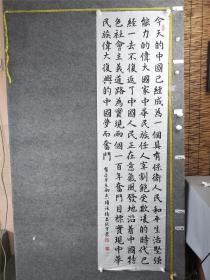 今天的中國已經成為一個具有保衛人民和平生活堅強
能力的偉大國家中華民族任人宰割飽受欺凌的時代已
經一去不復返了中國人民正在意氣風發地沿着中國特
色社會主義道路為實現兩個一百年奮鬥目標實現中華
民族偉大復興的中國夢而奮鬥